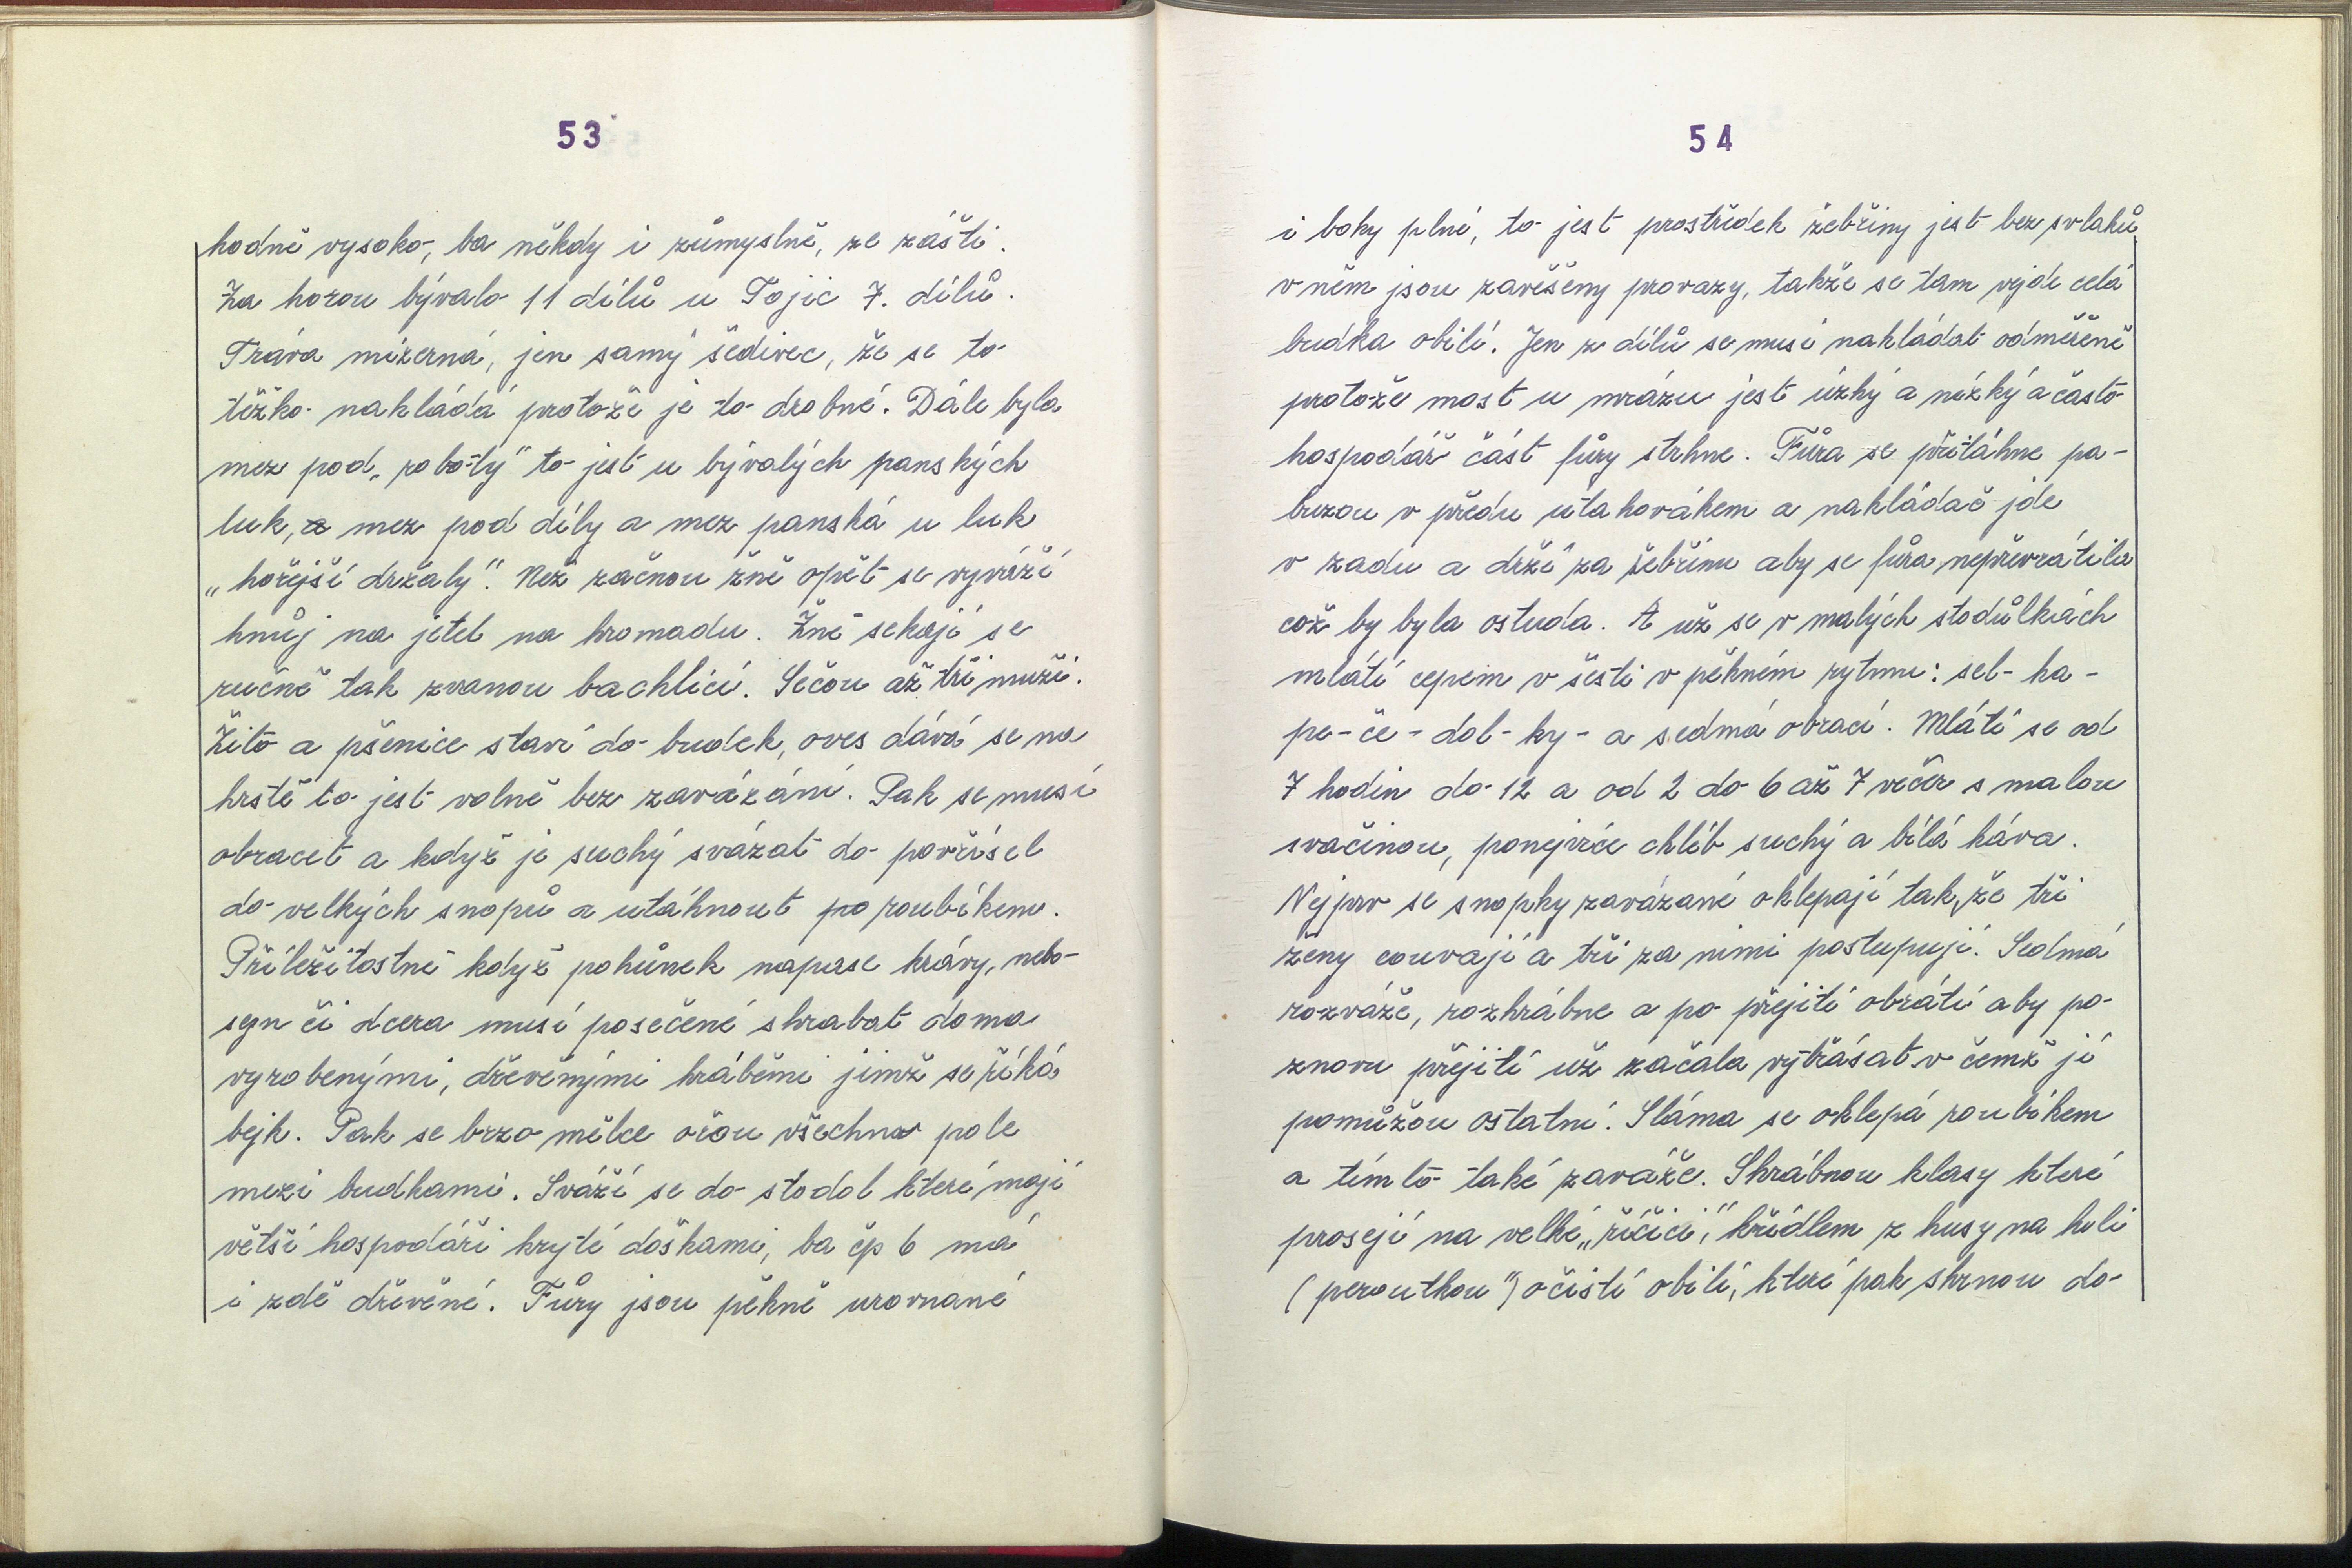 53
hodně vysoko, ba někdy i zůmyslně, ze zášti.
Za horou bývalo 11 dílů u Tojic 7. dílů.
Tráva mizerná, jen samý šedivec, že se to
těžko nakládá protože je to drobné. Dále byla
mez pod „roboty" to jest u bývalých panských
luk, a mez pod díly a mez panská u luk
„hořejší držaly". Než začnou žně opět se vyváží
hnůj na jetel na hromadu. Žně sekají se
ručně tak zvanou bachlicí. Sečou až tři muži.
Žito a pšenice staví do budek, oves dává se na
hrstě to jest volně bez zavázání. Pak se musí
obracet a když je suchý svázat do povřísel
do velkých snopů a utáhnout po roubíkem.
Příležitostně když pohůnek napase krávy, nebo
syn či dcera musí posečené shrabat doma
vyrobenými, dřevěnými hráběmi jimž se říká
bejk. Pak se brzo mělce ořou všechna pole
mezi budkami. Sváží se do stodol které mají
větší hospodáři kryté doškami, ba čp 6 má
i zdě dřevěné. Fůry jsou pěkně urovnané
54
i boky plné, to jest prostředek žebřiny jest bez svlaků
v něm jsou zavěšeny provazy, takže se tam vejde celá
budka obilí. Jen z dílů se musí nakládat odměřeně
protože most u mrázu jest úzký a nízký a často
hospodář část fůry strhne. Fůra se přitáhne pa-
buzou v předu utahovákem a nakládač jde
v zadu a drží za žebřinu aby se fůra nepřevrátila
což by byla ostuda. A už se v malých stodůlkách
mlátí cepem v šesti v pěkném rytmu: sel-ka-
pe-če-dol-ky-a sedmá obrací. Mlátí se od
7 hodin do 12 a od 2 do 6 až 7 večer s malou
svačinou, ponejvíce chléb suchý a bílá káva.
Nejprv se snopky zavázané oklepají tak, že tři
ženy couvají a tři za nimi postupují. Sedmá
rozváže, rozhrábne a po přejití obrátí aby po
znovu přejití už začala vytřásat v čemž jí
pomůžou ostatní. Sláma se oklepá roubíkem
a tímto také zaváže. Shrábnou klasy které
prosejí na velké „říčici," křídlem z husy na holi
(peroutkou") očistí obilí, které pak shrnou do